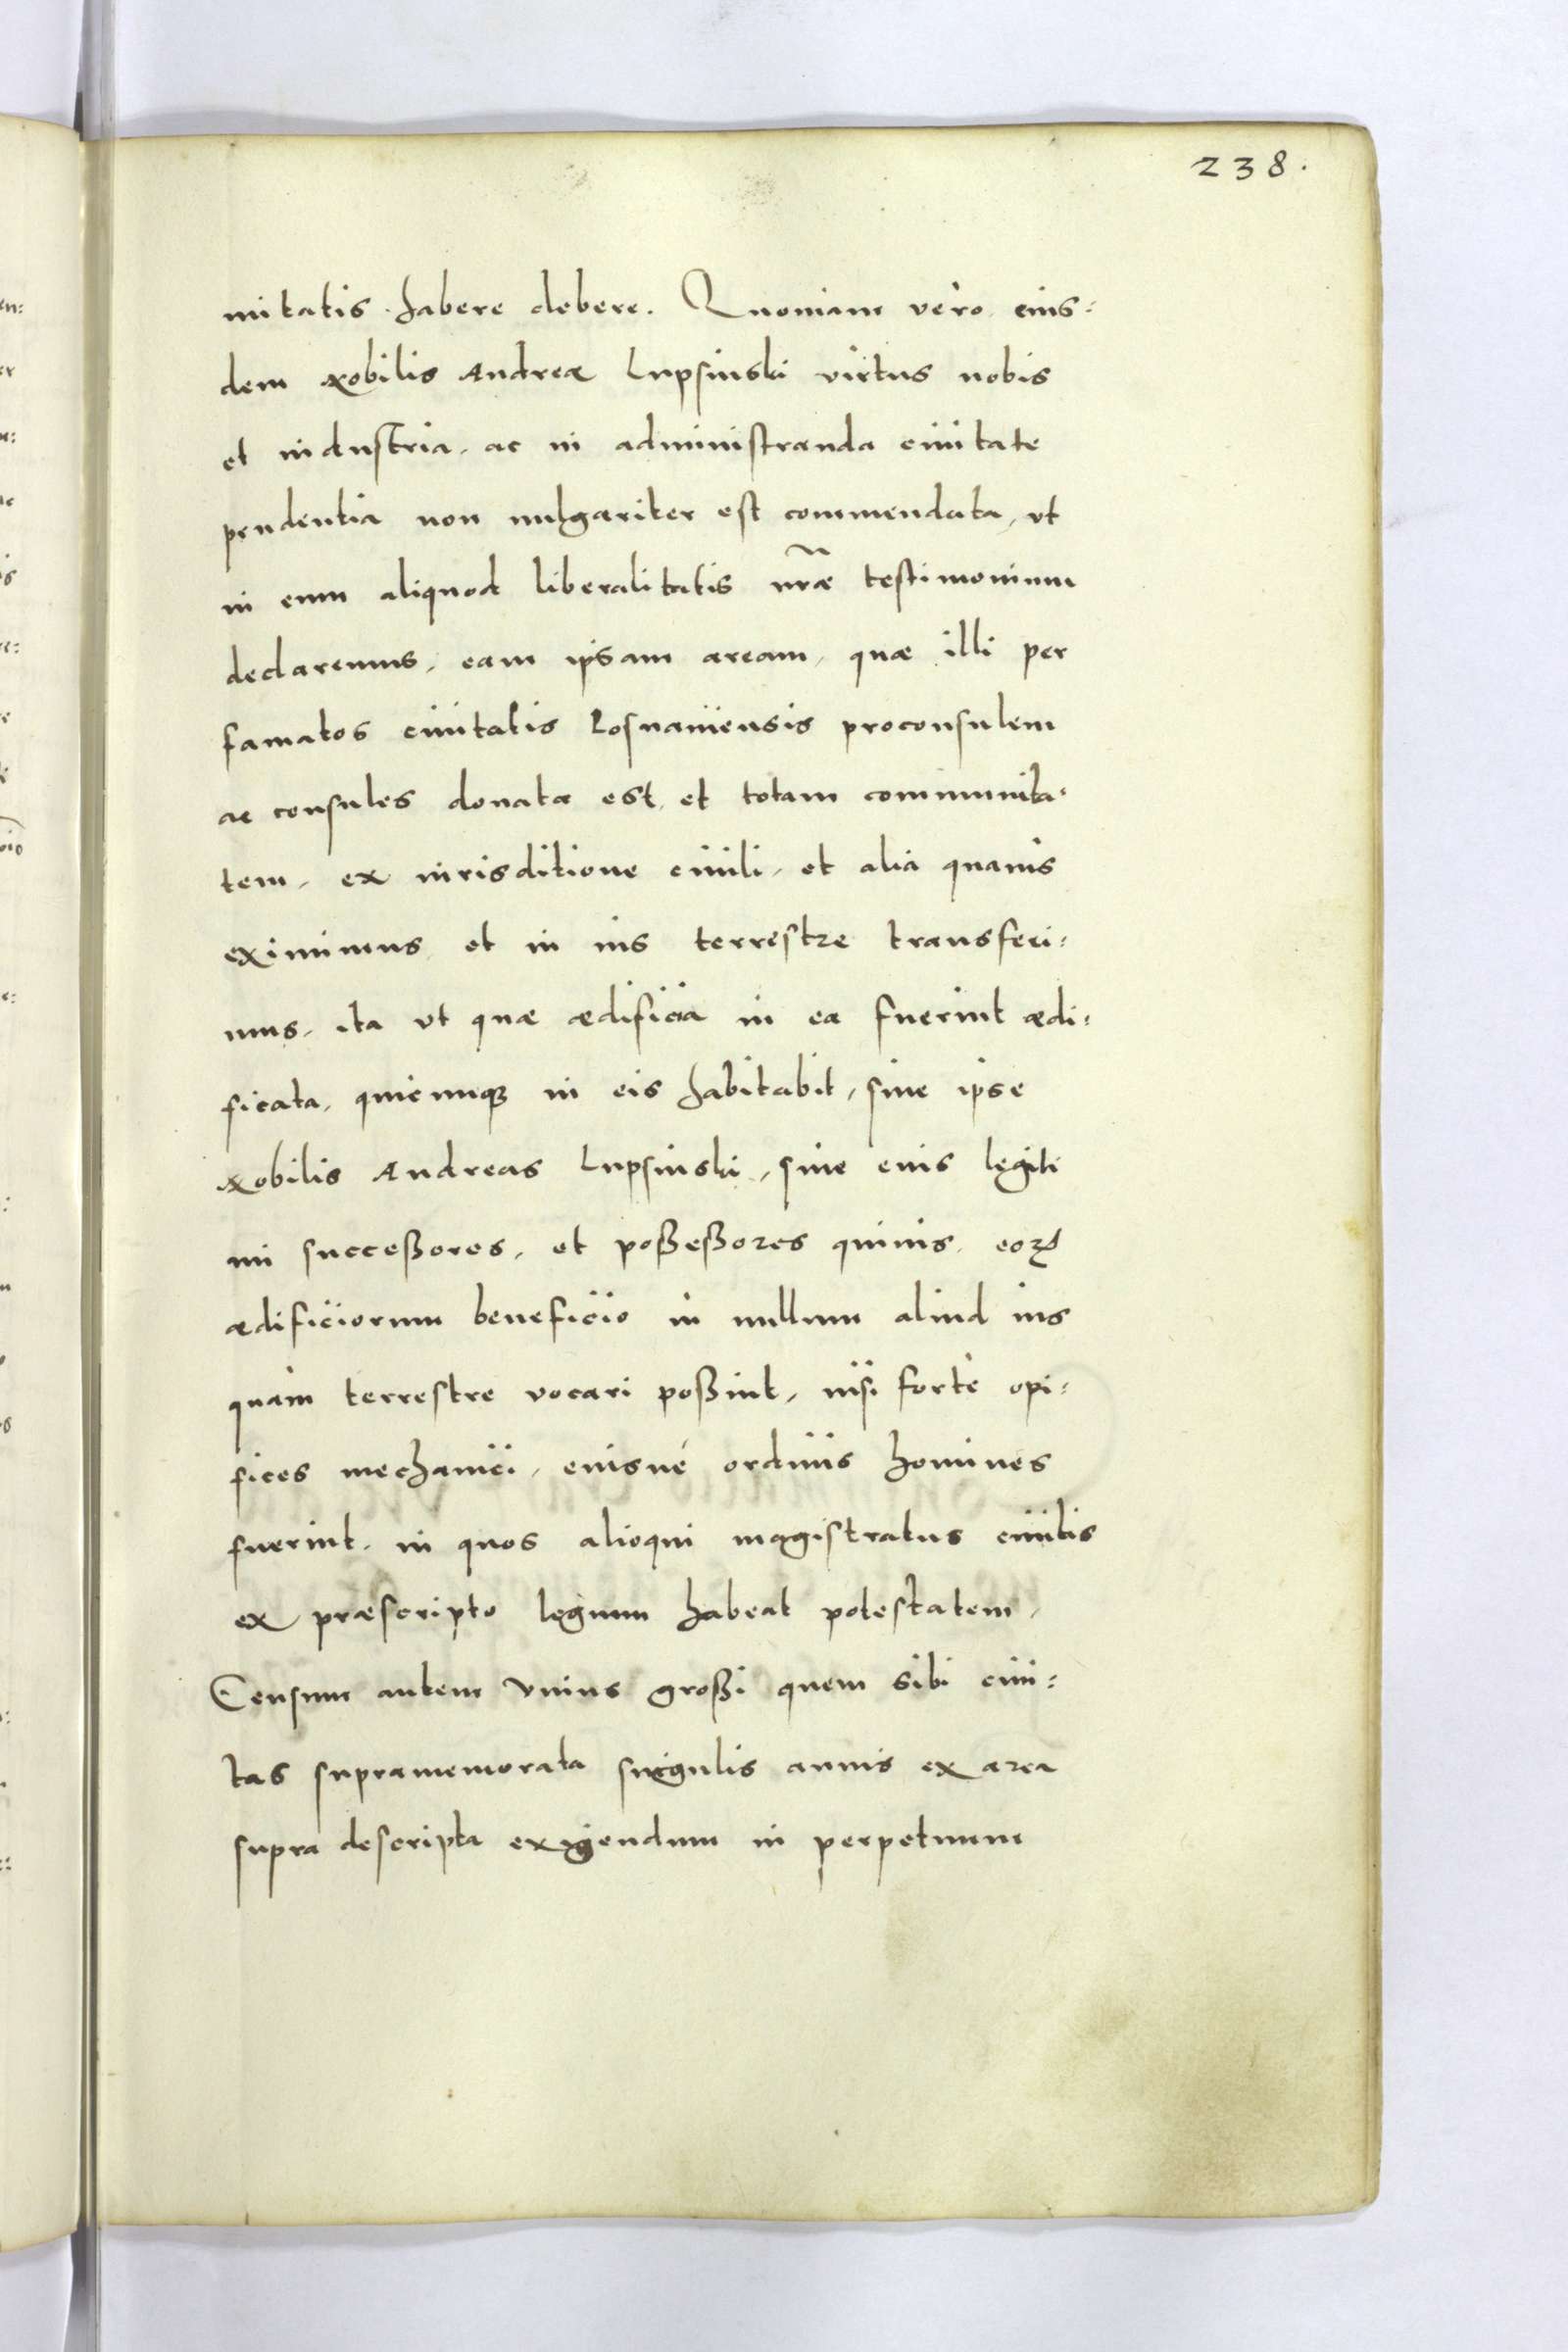 238.
mitatis habere debere. Quoniam vero eius=
dem Nobilis Andreæ Lupsinski virtus nobis
et industria, ac in administranda ciuitate
prudentia non uulgariter est commendata, vt
in eum aliquod liberalitatis nr̃æ testimonium
declaremus, eam ipsam aream, quæ illi per
famatos ciuitatis Posnaniensis proconsulem
ac consules donata est, et totam communita=
tem, ex iurisditione ciuili, et alia quauis
eximimus et in ius terrestre transferi=
mus, ita vt quæ ædificia in ea fuerint ædi=
ficata, quicunqz in eis habitabit, siue ipse
Nobilis Andreas Lupsinski, siue eius legiti
mi succeßores, et poßeßores quiuis, eoꝝ
ædificiorum beneficio in nullum aliud ius
quàm terrestre vocari poßint, nisi fortè opi=
fices mechanici, eiusué ordinis homines
fuerint, in quos alioqui magistratus ciuilis
ex præscripto legum habeat potestatem,
Censum autem vnius großi quem sibi ciui=
tas supramemorata singulis annis ex area
supra descripta exigendum in perpetuum